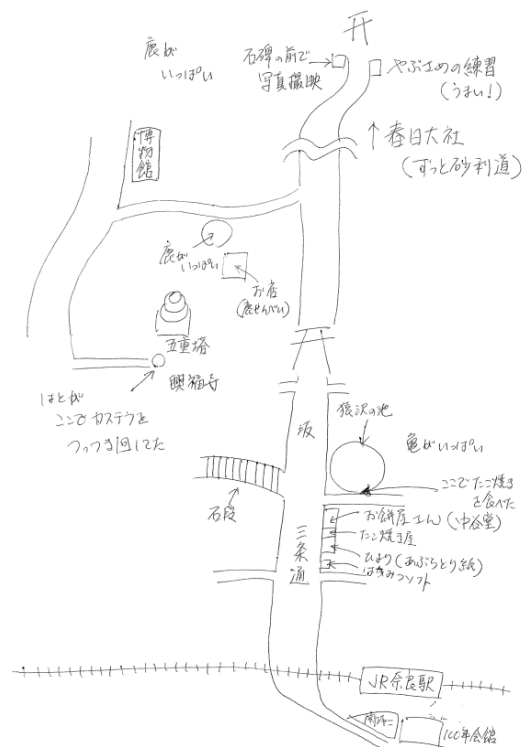 鹿が
いっぱい
石碑の前で
写真撮映
やぶさめの練習
(うまい!)
↑春日大社
(ずっと砂利道)
博物館
鹿が
いっぱい
お店
(鹿せんべい)
五重塔
興福寺
はとが
ここでカステラを
つっつき回してた
坂
猿沢の池
亀がいっぱい
ここでたこ焼き
を食べた
石段
三条通
お餅屋さん(中谷堂)
たこ焼き屋
ひより(あぶらとり紙)
はちみつソフト
JR奈良駅
100年会館